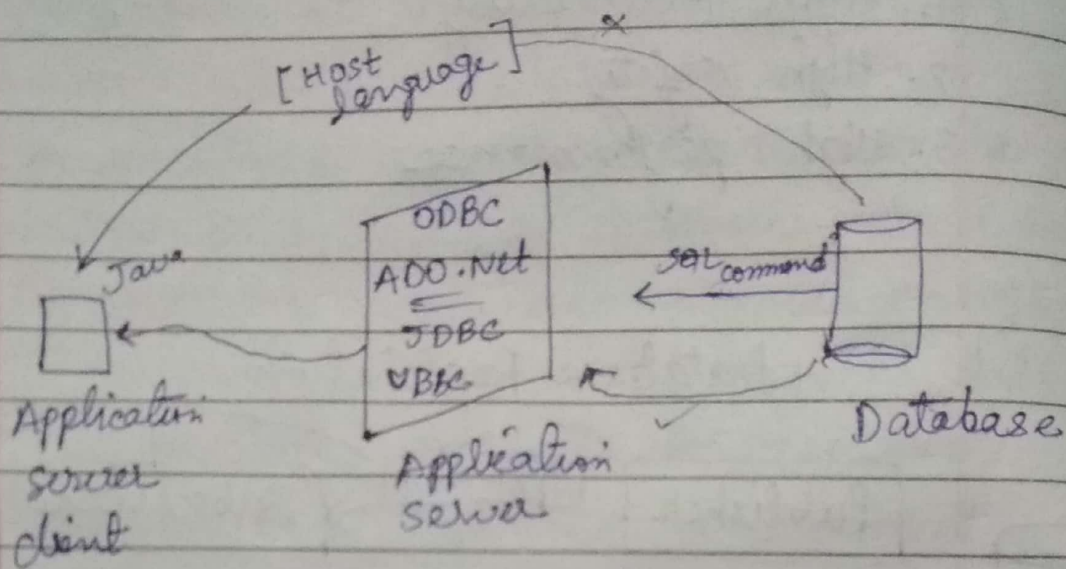 [Host
language]
x
Java
ODBC
ADO.Net
JDBC
SQL command
Application
server
client
Application
server
Database